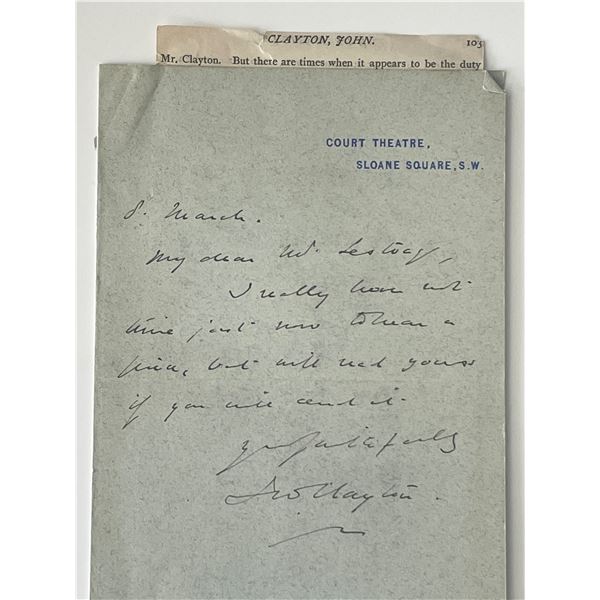 CLAYTON, JOHN. 103
Mr. Clayton. But there are times when it appears to be the duty
COURT THEATRE,
SLOANE SQUARE, S.W.
8. March.
My dear Mr.
I really have not
time just now to hear a
piece, but will read yours
if you will send it
Yrs faithfully
Clayton.